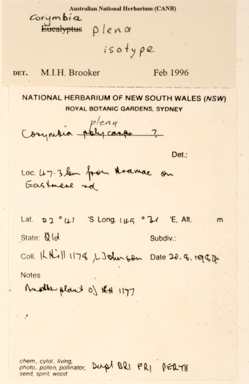 Australian National Herbarium (CANB)
Corymbia
Eucalyptus plena
isotype
DET. M.I.H. Brooker Feb 1996
NATIONAL HERBARIUM OF NEW SOUTH WALES (NSW)
ROYAL BOTANIC GARDENS, SYDNEY
plena
Corymbia polycarpa ?
Det.:
Loc. 47.3km from Aramac on
Eastmere rd
Lat. 22 ° 41 'S Long. 145 ° 31 'E, Alt. m
State: Qld Subdiv.:
Coll. K Hill 1178, L Johnson Date 20.8.1984
Notes
Another plant of KH 1177
chem, cytol, living,
photo, pollen, pollinator,
seed, spirit, wood
Dupl BRI PRI PERTH